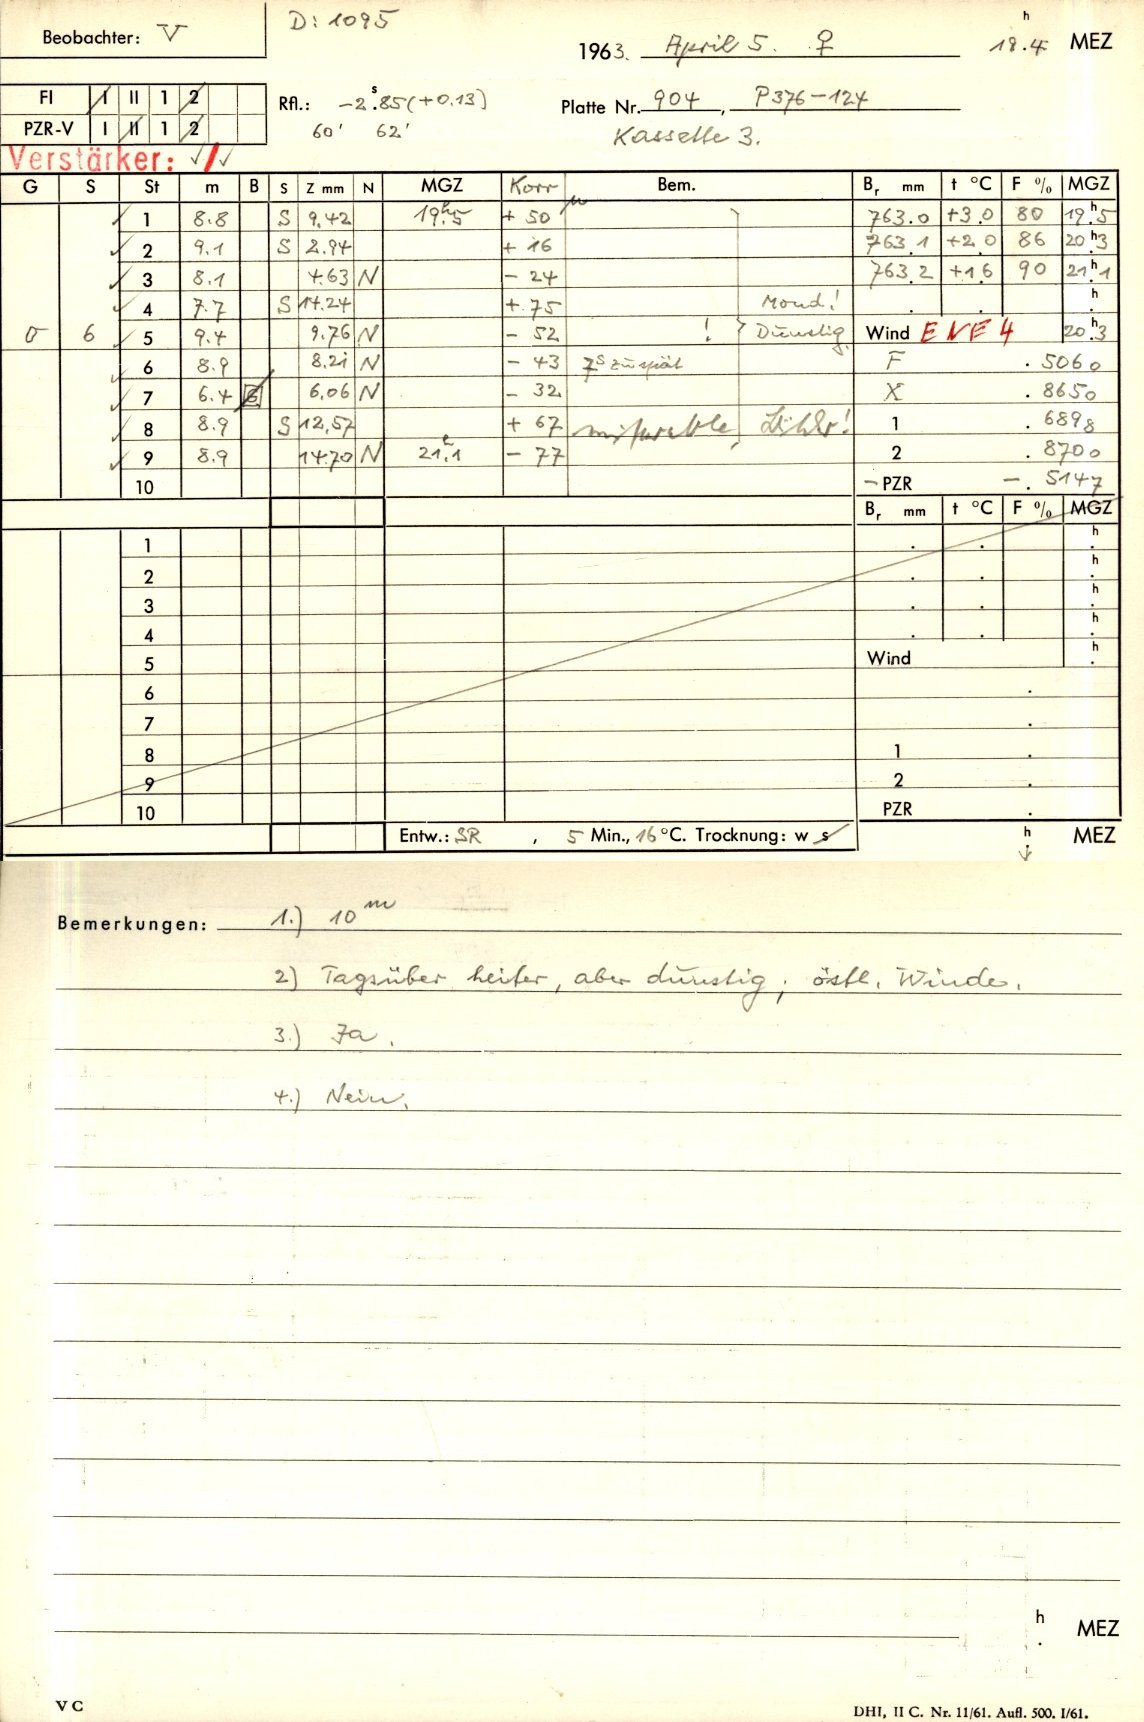 Beobachter: V
D: 1095
1963. April 5. ♀ 18.4 h MEZ
FI I II 1 2
PZR-V I II 1 2
Rfl.: -2.85 s (+0.13)
60' 62'
Platte Nr. 904, P376-124
Kassette 3.
Verstärker: √/√
G S St m B S Z mm N MGZ Korr Bem. Br mm t °C F % MGZ
1 8.8 S 9.42 19.h5 + 50 763.0 +3.0 80 19.h5
2 9.1 S 2.94 + 16 763.1 +2.0 86 20.h3
3 8.1 4.63 N - 24 763.2 +1.6 90 21.h1
4 7.7 S 14.24 + 75 Mond! . . h.
σ 6 5 9.4 9.76 N - 52 ! Dunstig. Wind ENE 4 20.h3
6 8.9 8.21 N - 43 7s zu spät F . 5060
7 6.4 6 6.06 N - 32 X . 8650
8 8.9 S 12,57 + 67 miserable Bilder! 1 . 6898
9 8.9 14.70 N 21.h1 - 77 2 . 8700
10 - PZR -. 5147
Br mm t °C F % MGZ
1 . . h.
2 . . h.
3 . . h.
4 . . h.
5 Wind h.
6 .
7 .
8 1 .
9 2 .
10 PZR .
Entw.: SR , 5 Min., 16 °C. Trocknung: w s h. MEZ
Bemerkungen: 1.) 10 m
2) Tagsüber heiter, aber dunstig; östl. Winde.
3.) Ja.
4.) Nein.
h. MEZ
V C
DHI, II C. Nr. 11/61. Aufl. 500. I/61.